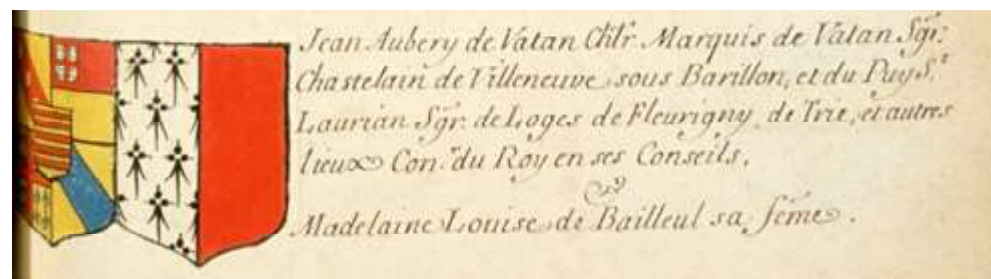 Jean Aubery de Vatan Chlr. Marquis de Vatan Sgr.
Chastelain de Villeneuve sous Barillon, et du Puy S.t
Laurian Sgr. de Loges de Fleurigny, de Trie, et autres
lieux Con.er du Roy en ses Conseils,
Madelaine Louise de Bailleul sa féme.